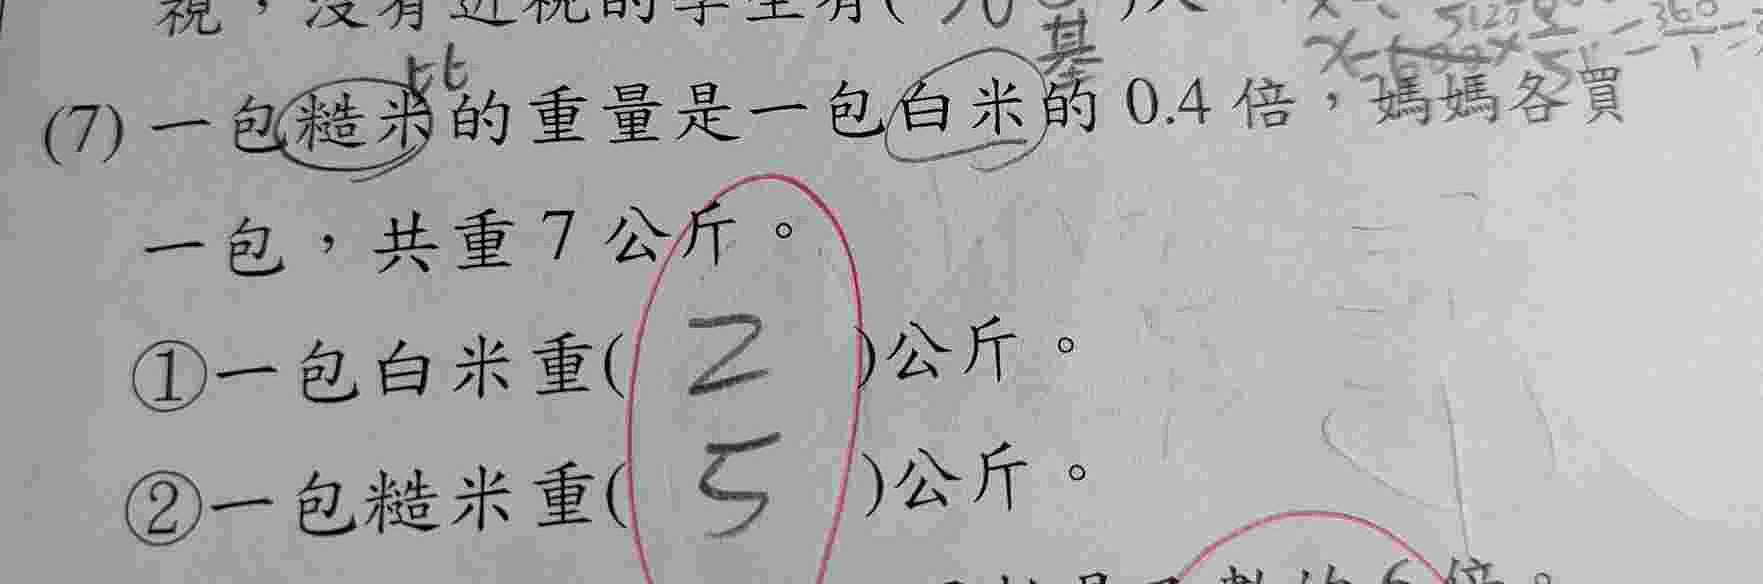 視，沒有近視的學生有( )人
比 基
(7) 一包糙米的重量是一包白米的 0.4 倍，媽媽各買
一包，共重 7 公斤。
①一包白米重( 2 )公斤。
②一包糙米重( 5 )公斤。
的 6 倍。